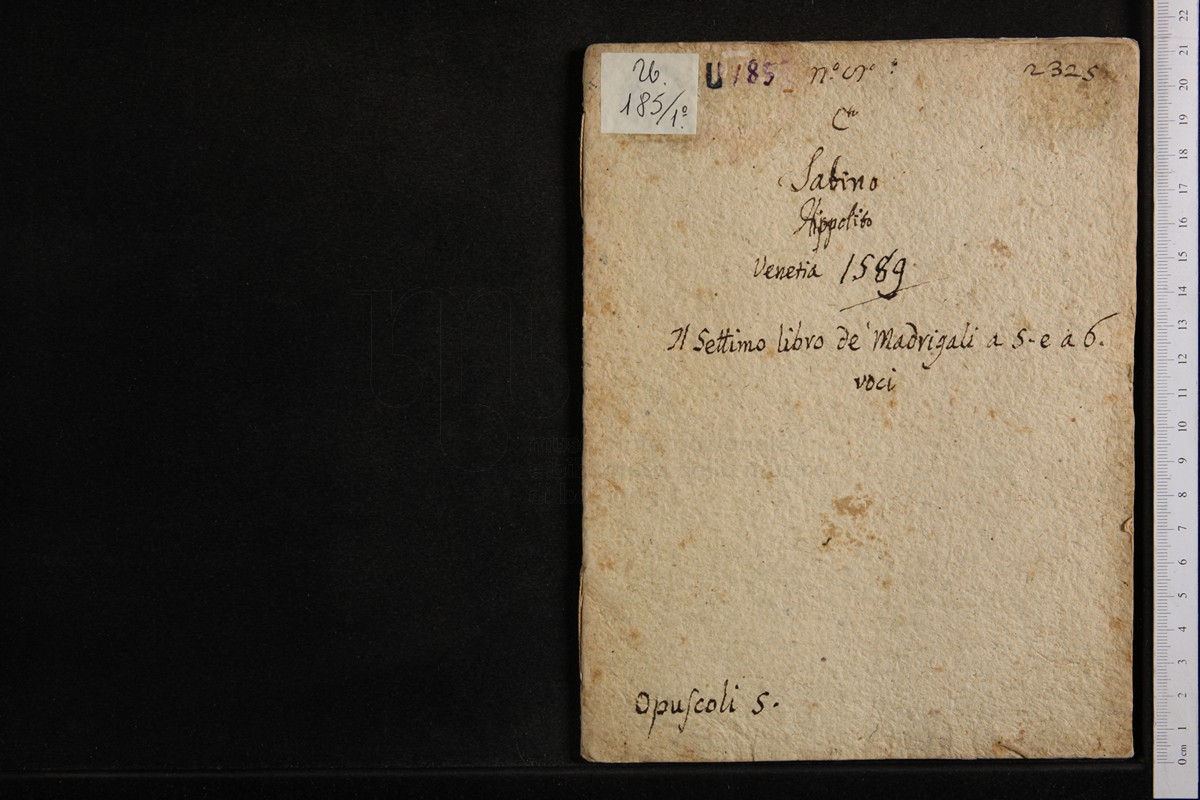 U.
185/1º.
U 185
2325
Sabino
Hippolito
Venetia 1589
Il Settimo libro de' Madrigali a 5. e a 6.
voci
Opuſcoli 5.
22
21
20
19
18
17
16
15
14
13
12
11
10
9
8
7
6
5
4
3
2
1
0 cm